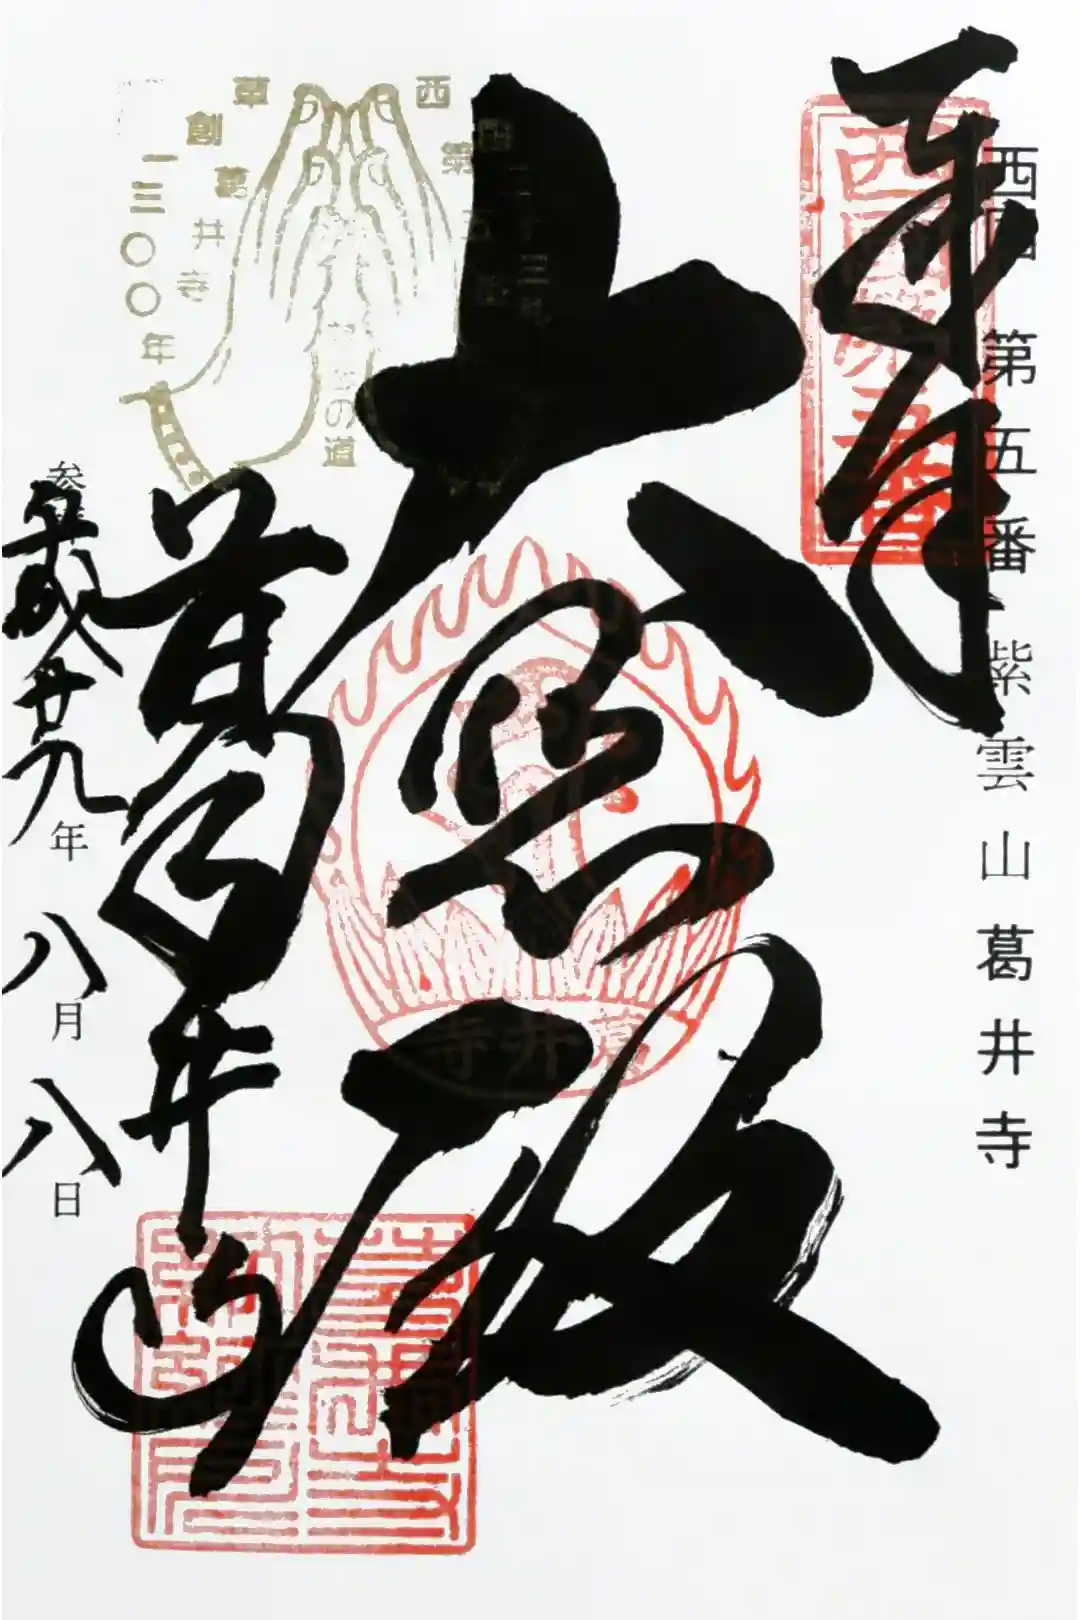 西国 第五番 紫雲山葛井寺
奉拝
西國第五番
大悲殿
葛井寺
葛井寺
参拝
平成廿九年 八月 八日
西国三十三所
第五番
葛井寺
草創一三〇〇年
慈悲の道